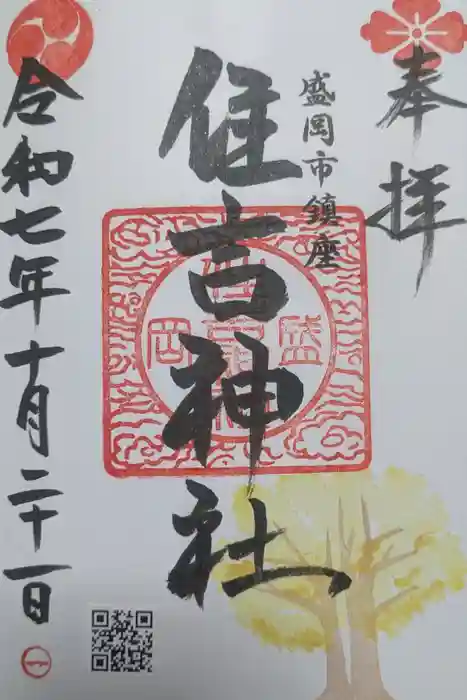 奉拝
盛岡市鎮座
住吉神社
令和七年十月二十一日